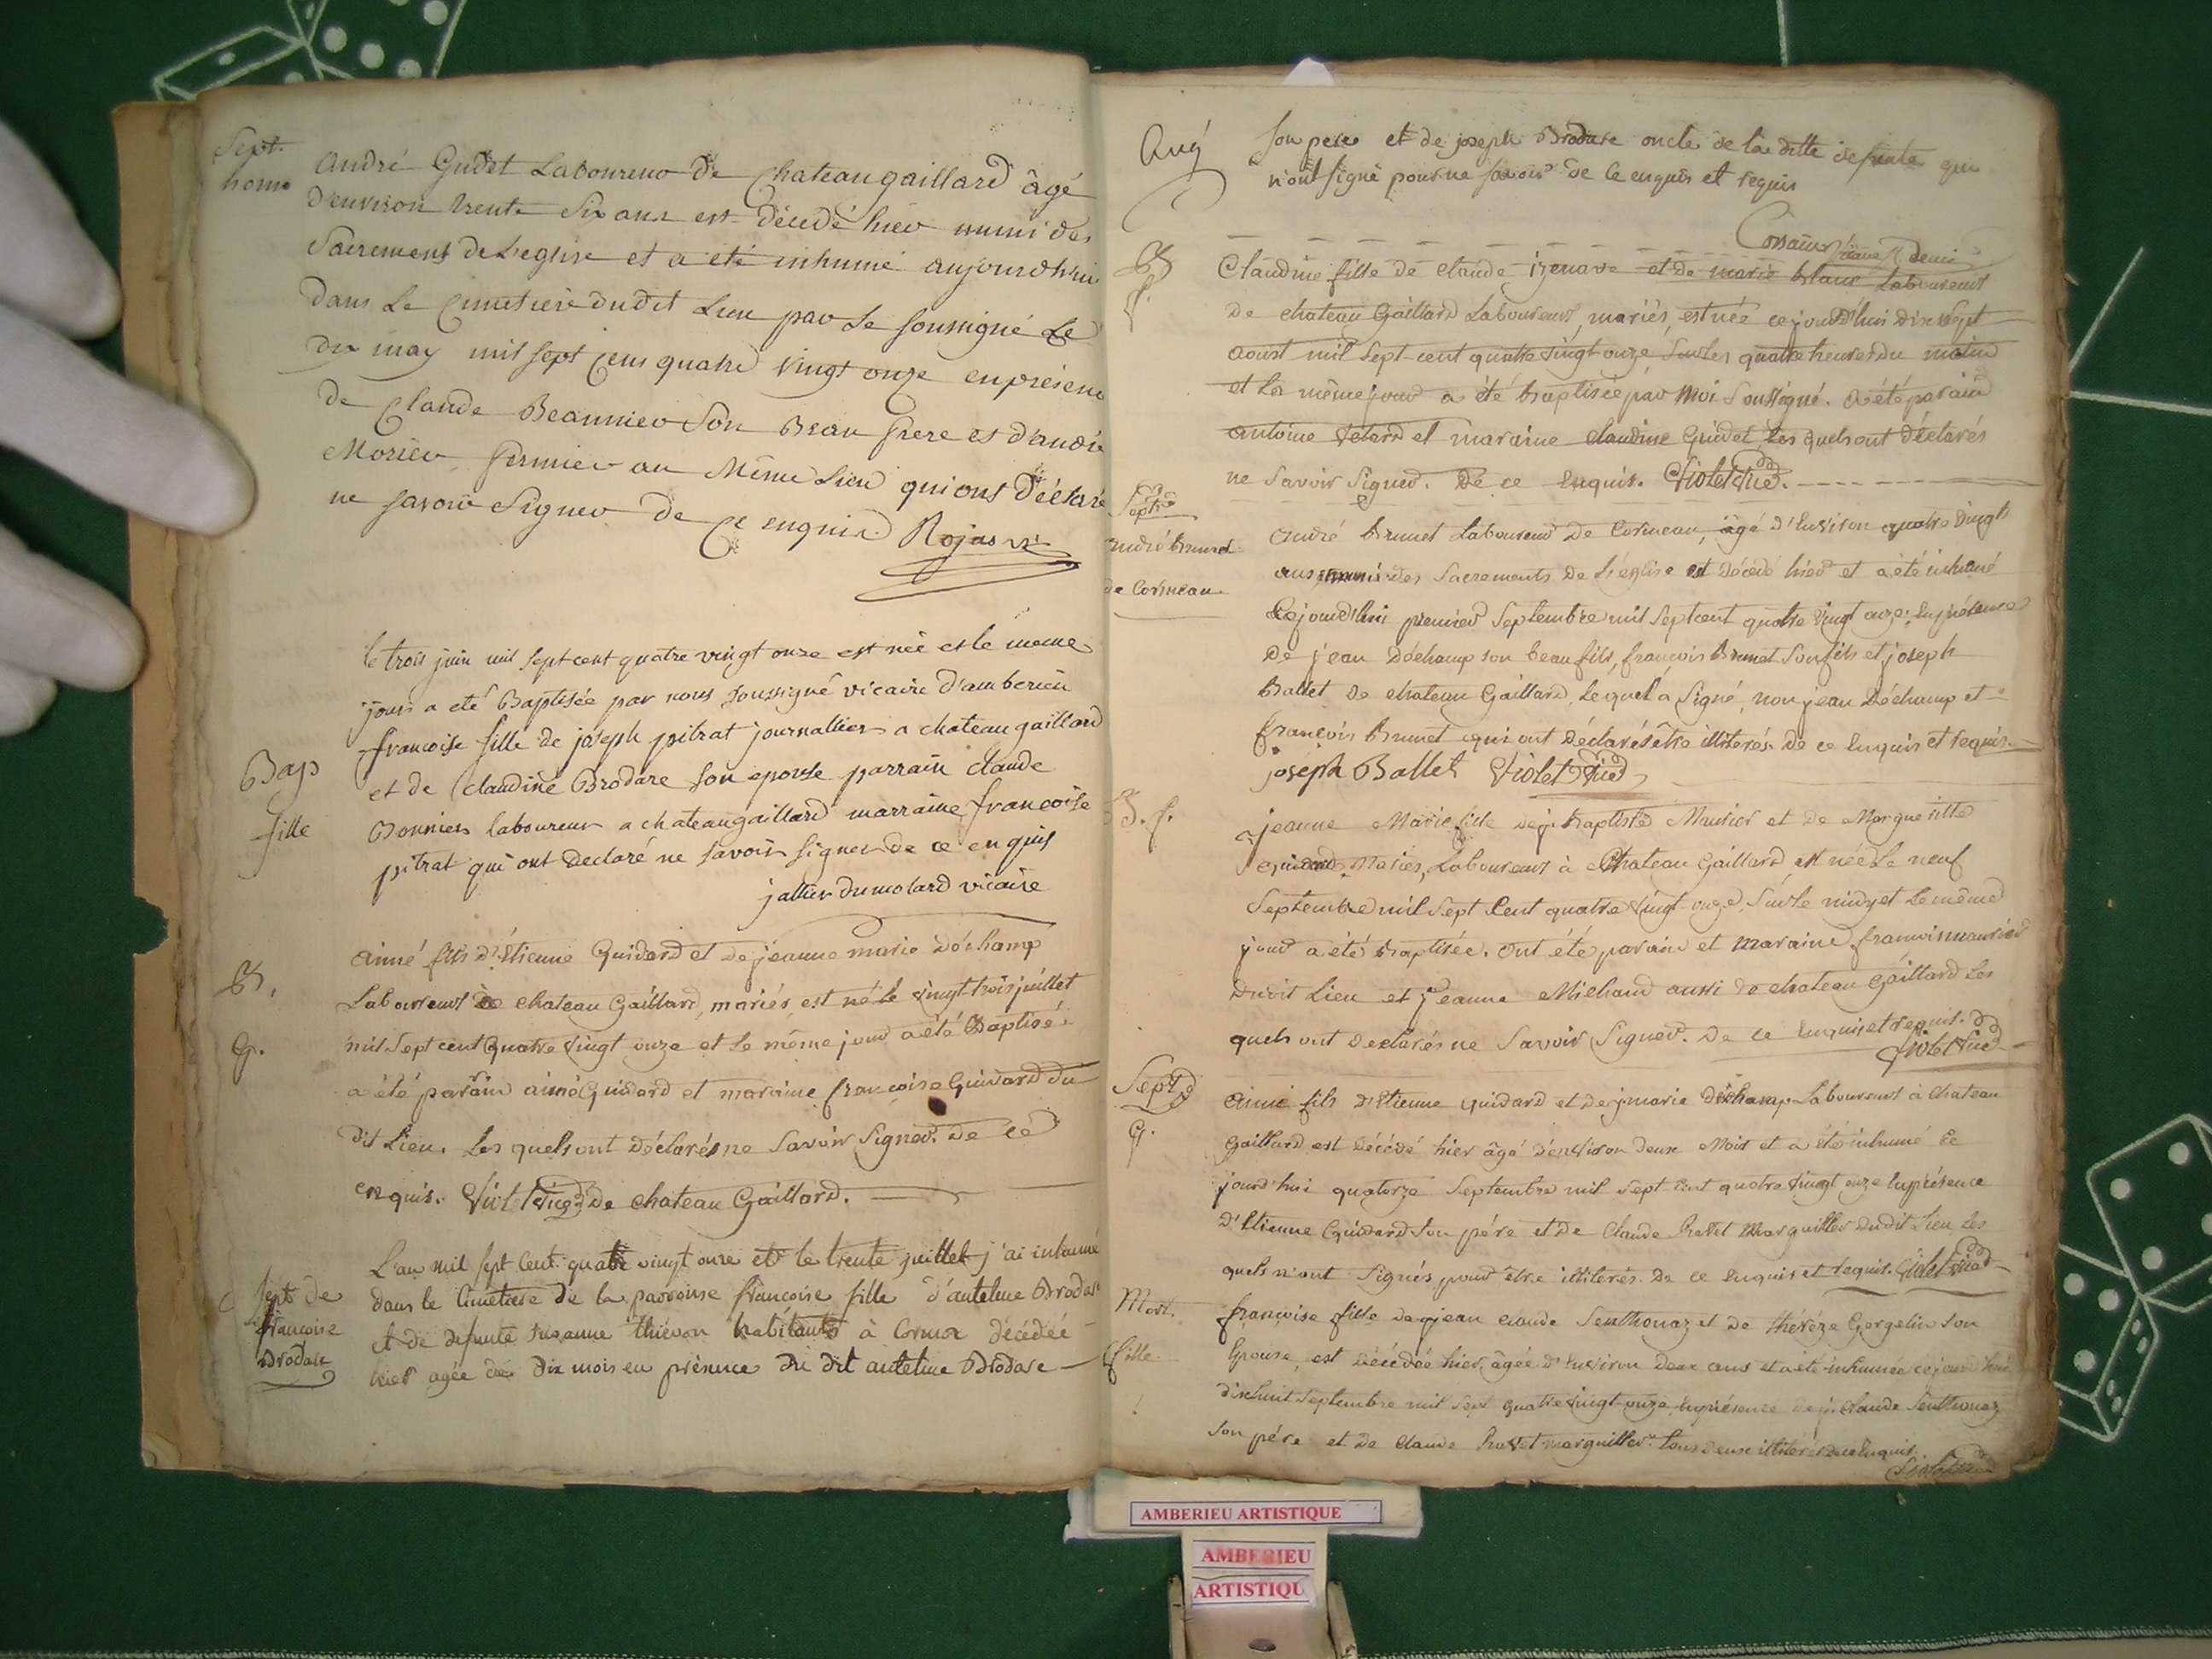 Sept.
home
André Gudet Laboureur de Chateaugaillard âgé
d'environ trente six ans est décedé hier muni des
Sacrements de L'eglise et a eté inhumé aujourdhui
dans Le Cimetiere dudit Lieu par le soussigné Le
dix may mil sept cens quatre vingt onze en présence
de Claude Beaunier Son Beau frere et d'andré
Morier fermier au Même Lieu qui ont déclaré
ne savoir Signer de ce enquis
Bap
fille
le trois juin mil sept cent quatre vingt onze est née et le meme
jour a eté Baptisée par nous soussigné vicaire d'amberieu
francoise fille de joseph pitrat journallier a chateaugaillard
et de Claudine Brodare son epouse parrain claude
Bonnier laboureur a chateaugaillard marraine francoise
pitrat qui ont declaré ne savoir signer de ce enquis
jallier dumolard vicaire
B.
G.
aimé fils d'Étienne Guidard et de jeanne marie déchamp
Laboureurs de chateau Gaillard, mariés, est né le vingt trois juillet
mil Sept cent quatre vingt onze et le même jour a été Baptisé.
a été parain aimé Guidard et maraine françoise Guidard du
dit Lieu. Les quels ont déclarés ne Savoir Signer. de ce
enquis. Violet Vic. de chateau Gaillard.
Sept de
françoise
Brodare
L'an mil sept cent quatre vingt onze et le trente juillet j'ai inhumé
dans le Cimetiere de la parroisse françoise fille d'antelme Brodare
et de defunte Suzanne thievon habitants à Cormoz décédée
hier agée de dix mois en présence du dit antelme Brodare
Aug
son pere et de joseph Brodare oncle de la ditte defunte qui
n'ont signé pour ne savoir de ce enquis et requis
B
f.
Claudine fille de claude izenave et de marie blanc Laboureurs
de chateau Gaillard Laboureurs, mariés, est née cejourd'hui dix sept
aoust mil Sept-cent quatre vingt onze, sur les quatre heures du matin
et le même jour a été baptisée par Moi Soussigné. a été parain
antoine et maraine claudine Guidet les quels ont déclarés
ne Savoir Signer. De ce Enquis. Violet Vic.
Septre
andré Brunet
de Cormeau
André Brunet Laboureur de Cormeau, âgé d'Environ quatre vingts
ans, muni des Sacrements de l'église est décédé hier et a été inhumé
Cejourd'hui premier Septembre mil Sept cent quatre vingt onze, En présence
De jean Déchamp son beau fils, françois Brunet Son fils et joseph
Ballet de chateau Gaillard, Lequel a Signé, non jean Déchamp et
françois Brunet qui ont déclarés être illiterés. de ce Enquis et requis.
joseph Ballet Violet Vic.
B. f.
jeanne Marie fille de j. baptiste Maurier et de Marguerite
Guidard, Mariés, Laboureurs à Chateau Gaillard est née Le neuf
Septembre mil Sept Cent quatre vingt onze, sur le midy et le même
jour a été baptisée. Ont été parain et maraine francois maurier
dudit Lieu et jeanne Michaud aussi de chateau Gaillard Les
quels ont declarés ne Savoir Signer. De ce Enquis et requis.
Violet Vic
Sept.
G.
aimé fils d'Etienne Guidard et de j. marie déchamp Laboureurs à Chateau
Gaillard est décédé hier âgé d'environ deux Mois et a été inhumé Ce
jourd'hui quatorze Septembre mil Sept Cent quatre vingt onze En présence
D'Etienne Guidard Son pére et De Claude Marguiller dudit Lieu Les
quels n'ont Signés pour être illiterés. De ce Enquis et requis. Violet Vic
Mort.
fille
françoise fille de jean claude Senthonaz et de théréze Gergelin son
Epouse, est décédée hier, âgée d'Environ deux ans et a été inhumée cejourd'hui
dix huit Septembre mil Sept quatre vingt onze En présence de j. Claude Senthonaz
son pére et de Claude marguiller tous deux illiterés de ce Enquis.
AMBERIEU ARTISTIQUE
AMBERIEU
ARTISTIQU